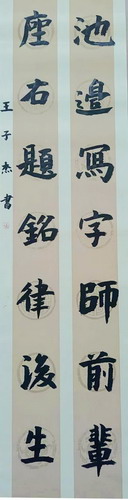 池邊寫字師前輩
座右題銘律後生
王子杰書